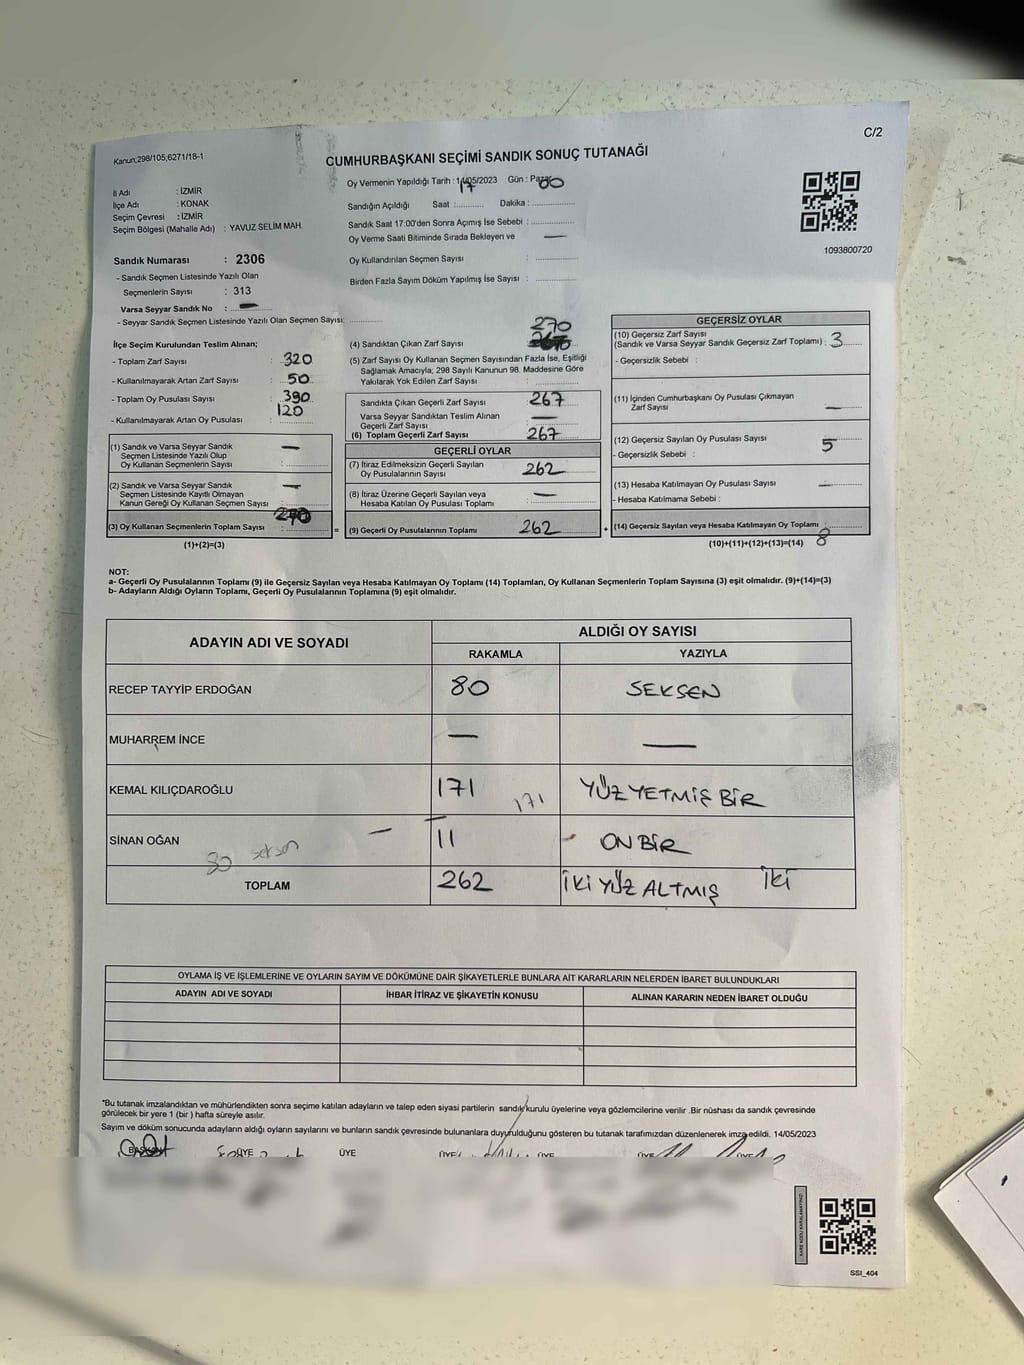 C/2
Kanun;298/105;6271/18-1
CUMHURBAŞKANI SEÇİMİ SANDIK SONUÇ TUTANAĞI
İl Adı : İZMİR
İlçe Adı : KONAK
Seçim Çevresi : İZMİR
Seçim Bölgesi (Mahalle Adı) : YAVUZ SELİM MAH.
Sandık Numarası : 2306
- Sandık Seçmen Listesinde Yazılı Olan
Seçmenlerin Sayısı : 313
Varsa Seyyar Sandık No : —
- Seyyar Sandık Seçmen Listesinde Yazılı Olan Seçmen Sayısı:
Oy Vermenin Yapıldığı Tarih : 14/05/2023 Gün :
17 00
Sandığın Açıldığı Saat : Dakika :
Sandık Saat 17:00'den Sonra Açımış İse Sebebi :
Oy Verme Saati Bitiminde Sırada Bekleyen ve —
Oy Kullandırılan Seçmen Sayısı :
Birden Fazla Sayım Döküm Yapılmış İse Sayısı :
1093800720
İlçe Seçim Kurulundan Teslim Alınan;
- Toplam Zarf Sayısı : 320
- Kullanılmayarak Artan Zarf Sayısı : 50
- Toplam Oy Pusulası Sayısı : 390
- Kullanılmayarak Artan Oy Pusulası : 120
(1) Sandık ve Varsa Seyyar Sandık —
Seçmen Listesinde Yazılı Olup
Oy Kullanan Seçmenlerin Sayısı :
(2) Sandık ve Varsa Seyyar Sandık —
Seçmen Listesinde Kayıtlı Olmayan
Kanun Gereği Oy Kullanan Seçmen Sayısı :
(3) Oy Kullanan Seçmenlerin Toplam Sayısı : 270
(1)+(2)=(3)
270
(4) Sandıktan Çıkan Zarf Sayısı
(5) Zarf Sayısı Oy Kullanan Seçmen Sayısından Fazla İse, Eşitliği
Sağlamak Amacıyla; 298 Sayılı Kanunun 98. Maddesine Göre
Yakılarak Yok Edilen Zarf Sayısı :
Sandıkta Çıkan Geçerli Zarf Sayısı 267
Varsa Seyyar Sandıktan Teslim Alınan —
Geçerli Zarf Sayısı
(6) Toplam Geçerli Zarf Sayısı 267
GEÇERLİ OYLAR
(7) İtiraz Edilmeksizin Geçerli Sayılan 262
Oy Pusulalarının Sayısı
(8) İtiraz Üzerine Geçerli Sayılan veya —
Hesaba Katılan Oy Pusulası Toplamı
= (9) Geçerli Oy Pusulalarının Toplamı 262
GEÇERSİZ OYLAR
(10) Geçersiz Zarf Sayısı
(Sandık ve Varsa Seyyar Sandık Geçersiz Zarf Toplamı) : 3
- Geçersizlik Sebebi :
(11) İçinden Cumhurbaşkanı Oy Pusulası Çıkmayan
Zarf Sayısı —
(12) Geçersiz Sayılan Oy Pusulası Sayısı 5
- Geçersizlik Sebebi :
(13) Hesaba Katılmayan Oy Pusulası Sayısı —
- Hesaba Katılmama Sebebi :
+ (14) Geçersiz Sayılan veya Hesaba Katılmayan Oy Toplamı
(10)+(11)+(12)+(13)=(14) 8
NOT:
a- Geçerli Oy Pusulalarının Toplamı (9) ile Geçersiz Sayılan veya Hesaba Katılmayan Oy Toplamı (14) Toplamları, Oy Kullanan Seçmenlerin Toplam Sayısına (3) eşit olmalıdır. (9)+(14)=(3)
b- Adayların Aldığı Oyların Toplamı, Geçerli Oy Pusulalarının Toplamına (9) eşit olmalıdır.
ADAYIN ADI VE SOYADI ALDIĞI OY SAYISI
RAKAMLA YAZIYLA
RECEP TAYYİP ERDOĞAN 80 SEKSEN
MUHARREM İNCE — —
KEMAL KILIÇDAROĞLU 171 171 YÜZ YETMİŞ BİR
SİNAN OĞAN — 11 - ON BİR
80 seksen
TOPLAM 262 İKİ YÜZ ALTMIŞ İKİ
OYLAMA İŞ VE İŞLEMLERİNE VE OYLARIN SAYIM VE DÖKÜMÜNE DAİR ŞİKAYETLERLE BUNLARA AİT KARARLARIN NELERDEN İBARET BULUNDUKLARI
ADAYIN ADI VE SOYADI İHBAR İTİRAZ VE ŞİKAYETİN KONUSU ALINAN KARARIN NEDEN İBARET OLDUĞU
*Bu tutanak imzalandıktan ve mühürlendikten sonra seçime katılan adayların ve talep eden siyasi partilerin sandık kurulu üyelerine veya gözlemcilerine verilir .Bir nüshası da sandık çevresinde
görülecek bir yere 1 (bir ) hafta süreyle asılır.
Sayım ve döküm sonucunda adayların aldığı oyların sayılarını ve bunların sandık çevresinde bulunanlara duyurulduğunu gösteren bu tutanak tarafımızdan düzenlenerek imza edildi. 14/05/2023
BAŞKAN ÜYE ÜYE ÜYE ÜYE ÜYE ÜYE
SSI_404